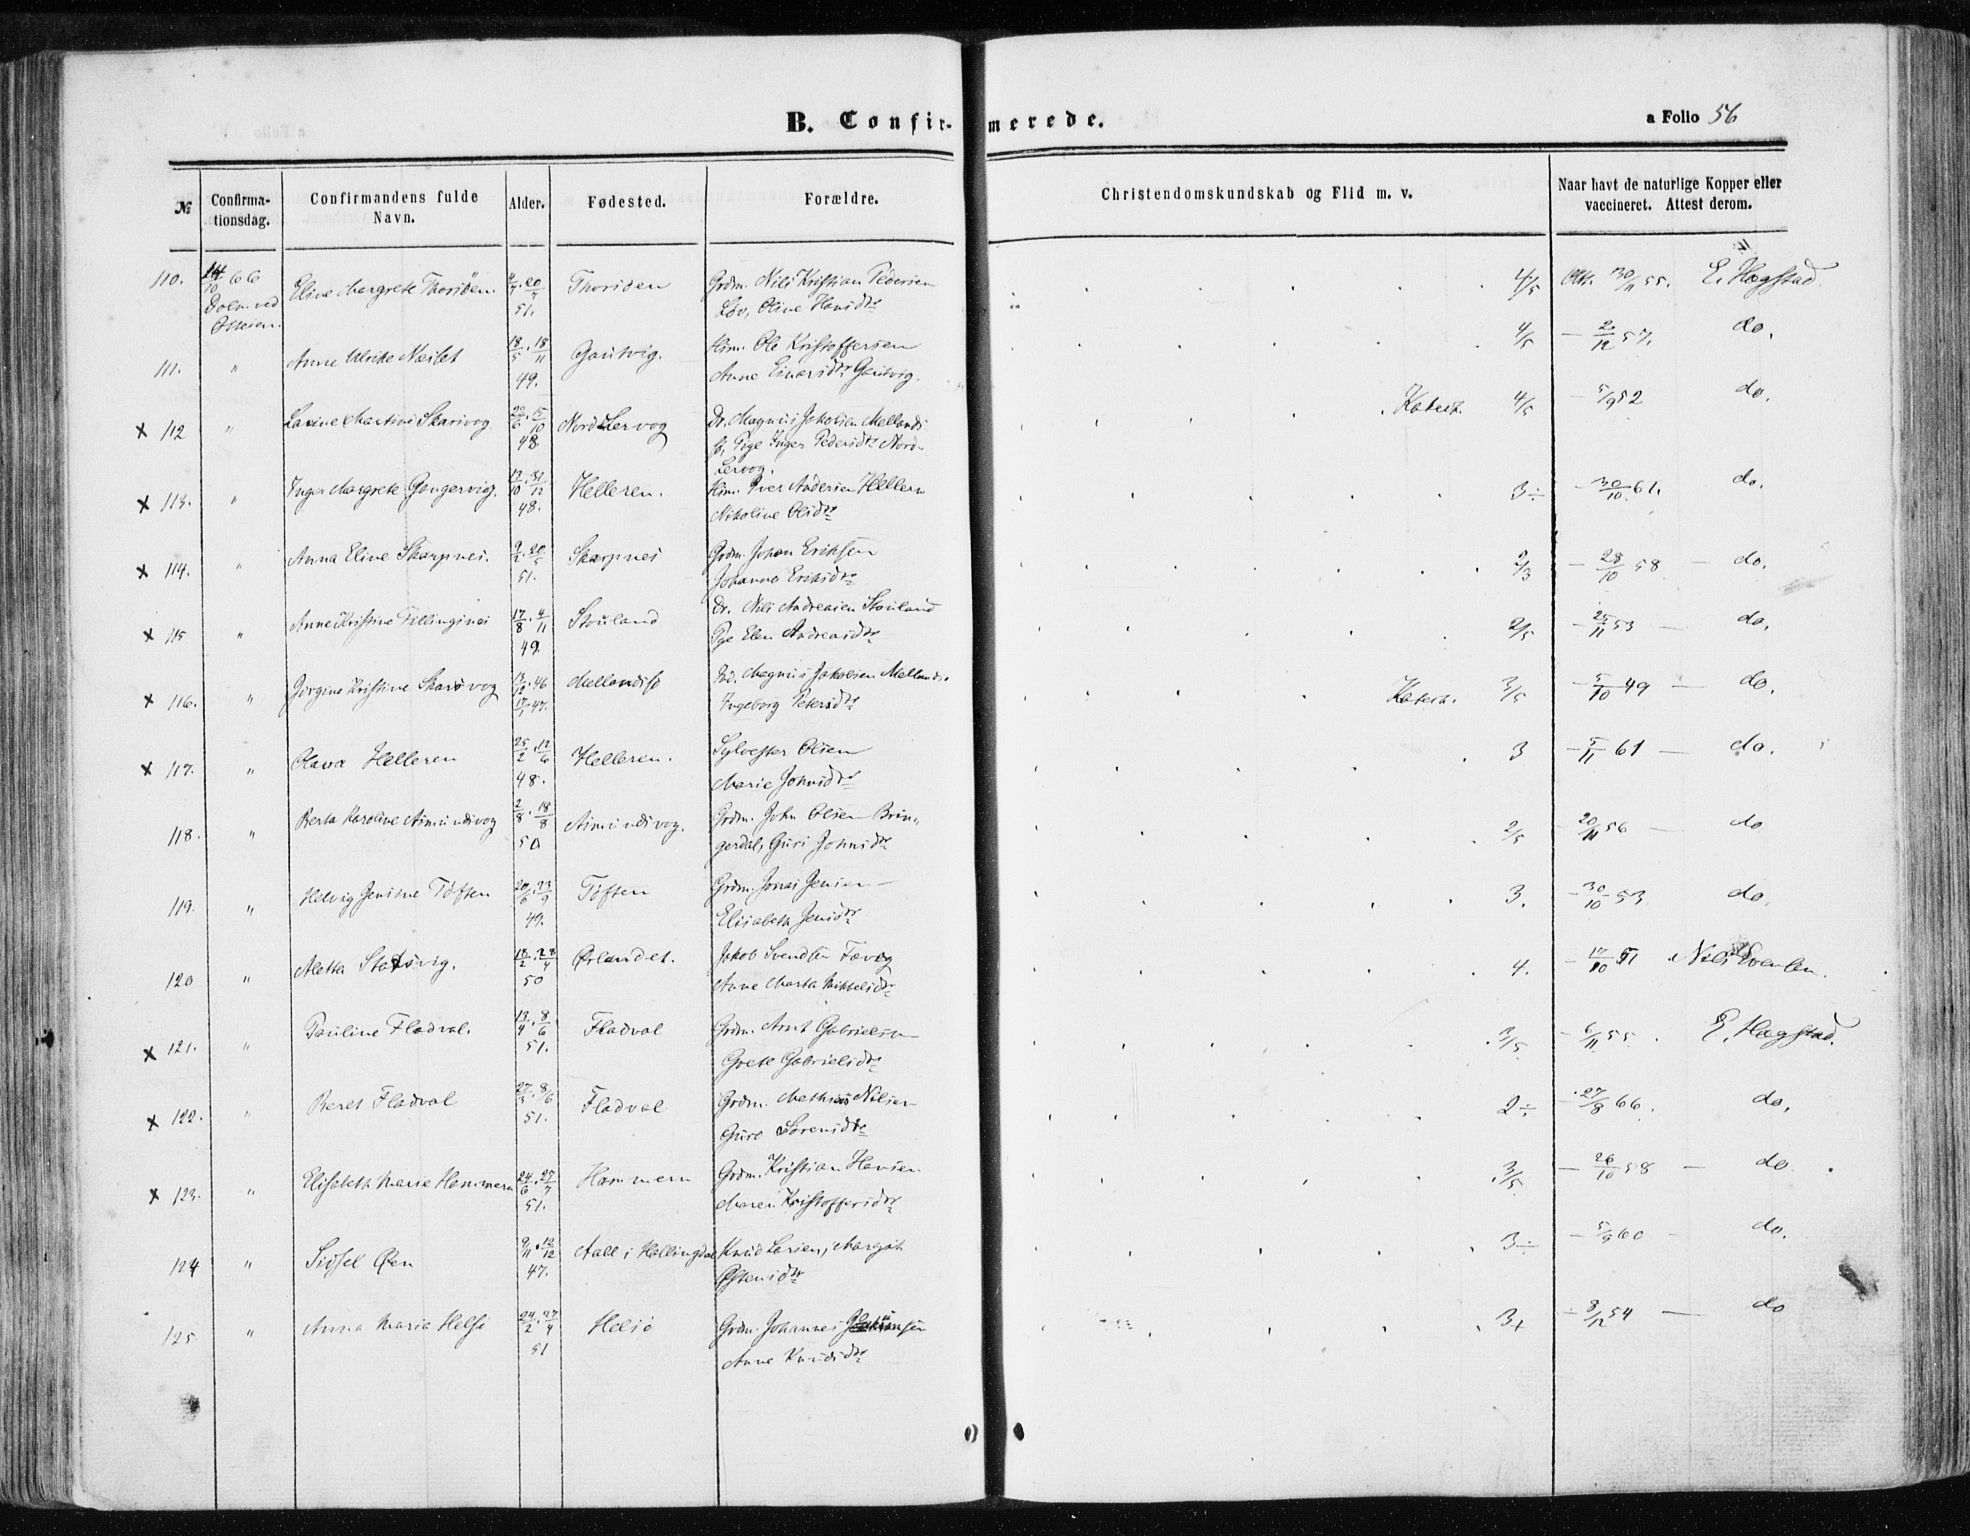 B. Confir- merede.
a Folio 56
№ Confirma-tionsdag. Confirmandens fulde Navn. Alder. Fødested. Forældre. Christendomskundskab og Flid m. v. Naar havt de naturlige Kopper eller vaccineret. Attest derom.
110. 14/10 66 Eline Margrete Thorisen. 4/7. 20/7 Thorisen Grdm. Nils Kristian Pedersen 4/5 Att. 30/11 55. E. Hagstad.
51. Lov, Oline Hansdtr
111. " Anne Ulrike Næslet 18/5. 18/11 Gautvig. Hm. Ole Kristoffersen 4/5 - 2/12 57. do.
49. Anne Einarsdtr Gautvig.
x 112 " Lavine Martine Skarsvog 22/6. 15/10 Nord Lervog Dr. Magnus Jakobsen Mellands Katect. 4/5 - 5/9 52 do.
48. Pige Inger Pedersdtr Nord-
Lervog.
x 113. " Inger Margrete Gangervig. 12/10. 31/12 Helleren. Hm. Iver Andersen Hellern 3÷ - 30/10 61. do.
48. Nikoline Olsdtr
x 114. " Anna Eline Skarpnes. 2/2. 20/5 Skarpnes Grdm. Johan Eriksen 2/3 - 28/10 58 - do.
51. Johanna Eriksdtr
x 115 " Anne Kristine Fillingsnes 17/8. 4/11 Stouland Dr. Nils Andreasen Stouland 2/5 - 25/11 53 - do.
49. Pge Elen Andreasdtr
x 116. " Jørgine Kristine Skarsvog 46 Mellandsø Magnus Jakobsen Mellands. Katect. 3/5 - 5/10 49 - do.
47. Ingeborg Petersdtr
x 117. " Olava Helleren 25/2. 12/6 Helleren. Sylvester Olsen 3 - 5/11 61 - do.
48. Marie Johnsdtr
118. " Berta Karoline Asmundsvog 2/8. 18/8 Asmundsvog. Grdm. John Olsen Brin- 2/5 20/11 56 - do
50 gerdal, Guri Johnsdtr
119. " Helvig Jensine Töften 20/6. 23/9 Töften Grdm. Jonas Jensen 3. - 30/10 53 do.
49. Elisabeth Jensdtr
120 " Aletta Stotsvig. 18/2. 28/4 Ørlandet. Jakob Svendsen Tøvog 4. - 17/10 51 Nils Svensen.
50 Anne Marta Mikkelsdtr
x 121. " Pauline Fladval. 13/4. 8/6 Fladval Grdm. Arnt Gabrielsen 3/5. - 6/11 55. E. Hagstad.
51. Grete Gabrielsdtr
x 122. " Beret Fladval 27/5. 8/6 Fladval Grdm. Mathias Nilsen 2÷ - 27/8 66. do.
51. Guro Sørensdtr
x 123. " Elisabeth Marie Hammern 24/6. 27/7 Hammern Grdm. Kristian Hansen 3/5. - 26/10 58 - do.
51. Maren Kristoffersdtr
124 " Sidsel Øen 9/11. 12/12 Aall i Hallingdal Knud Larsen, Margit 3÷ - 5/9 60 - do.
47. Østensdtr
125. " Anna Maria Helsø 24/2. 27/4 Helsø Grdm. Johannes 3+ - 8/12 54 - do
51 Anne Knudsdtr